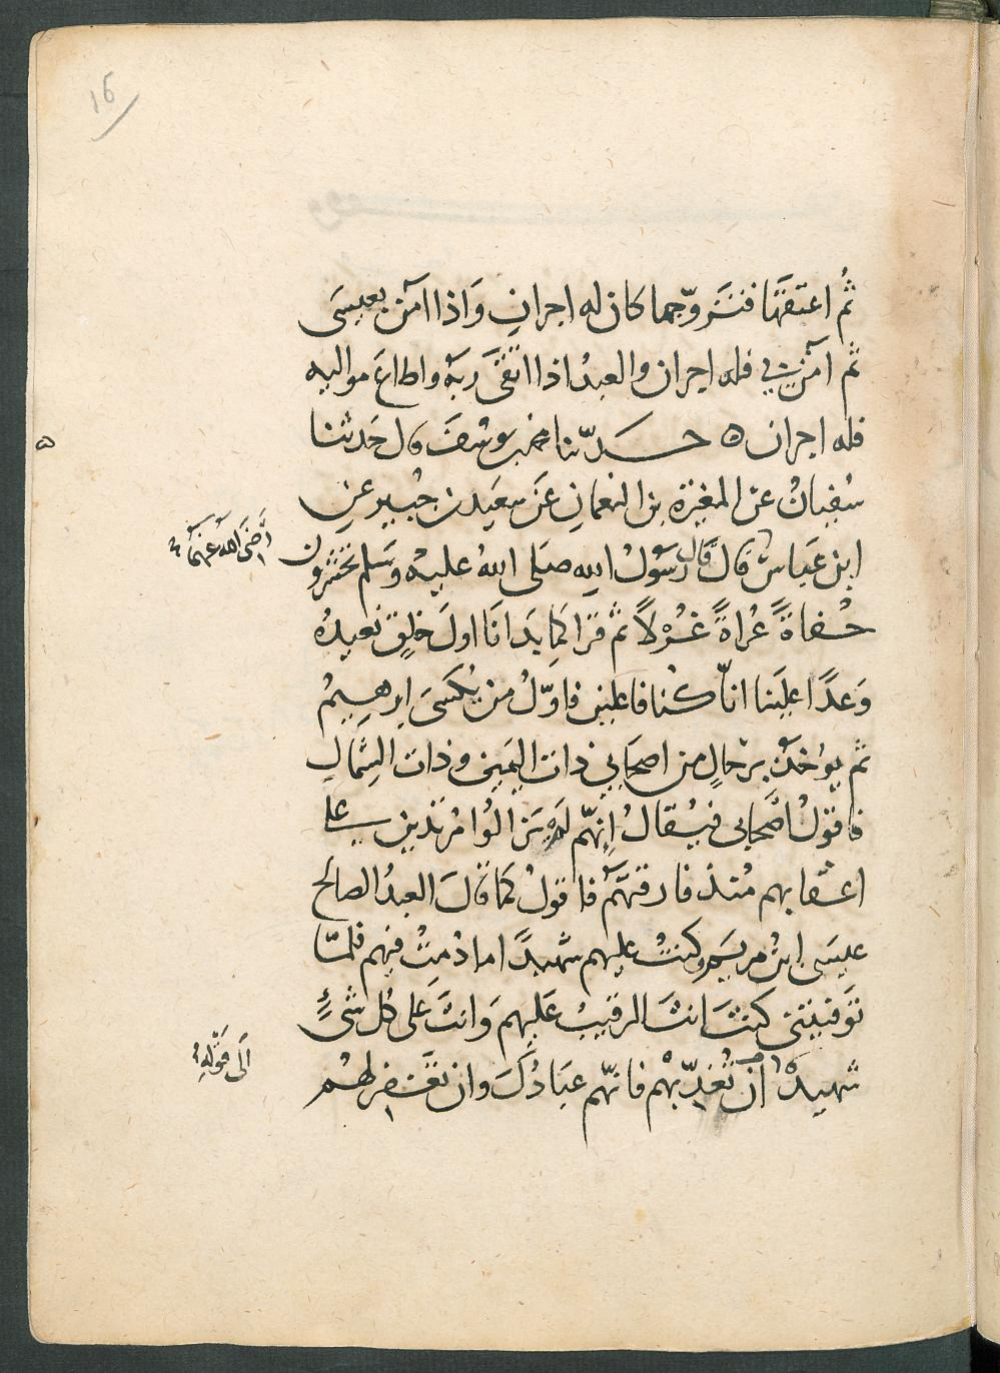 16
ثُم اعتقَهَا فتَزوّجها كان له اجرانِ وَاذا امَن بعيسَى
ثم آمن بي فله اجران والعبدُ اذا اتقَى ربَهُ واطاعَ مواليه
فله اجران ه حــدّثنا محمد بن يوسُفَ قال حَدثنا
سُفيانُ عن المغيرة بن النعمانِ عَن سعَيد بن جُبير عنِ
ابن عَباسٍ قال قال رسَولُ الله صلى اللهُ عليهْ وَسَلم تحشرون
رَضىَ الله عَنهُمَا
حُفاةً عُراةً غُرْلاً ثم قرا كما بَدانَا اولَ خلقٍ نعيدهُ
وَعدًا علَينا انّا كُنا فاعلين فاوّلُ من يُكسَى ابرهيمُ
ثم يوخذُ برجالٍ من اصحَابي ذاتَ اليَمين وذات الشِمالِ
فاقولُ اصْحابى فيُقالُ اِنهّم لم يَزالُوا مُرتدين على
اعقابهم مُنذ فارقتهَم فاقولُ كمَا قالَ العبدُ الصالح
عيسَى ابنُ مريَم وكنتُ عليهم شَهيدًا ما دُمتُ فيهم فلمّا
توَفيتنى كنتَ انتَ الرقيبُ عَليهم وَانتَ عَلى كُل شىءٍ
شهيدٌ انْ تُعَذِّبْهم فانهّم عبَادُكَ وان تغَفر لهُم
الَى قَوْلِهِ